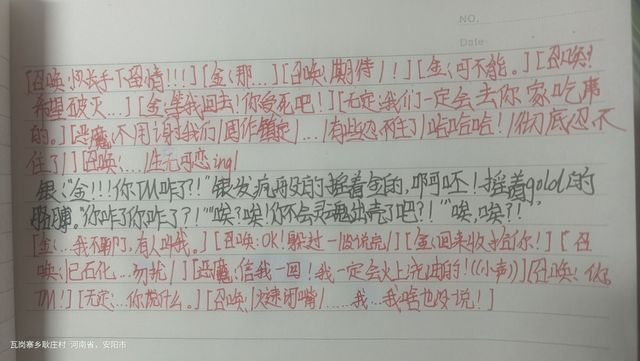 NO.
Date
[召唤:队长手下留情!!!][金:那...][召唤:(期待)!][金:可不能。][召唤:
希望破灭...][金:等我回去!你受死吧!][无定:我们一定会去你家吃席
的。][恶魔:不用谢我们(围作镇定)...(有些忍不住了)哈哈哈!(彻底忍不
住了)][召唤:...(生无可恋ing)
银:"金!!!你TM咋了?!"银发疯两的摇着金的,啊呸!摇着gold的
胳膊。"你咋了你咋了?!""唉?唉!你不会灵魂出壳了吧?!""唉,唉?!"
[金:...我不聊了,有人叫我。][召唤:OK!躲过一波说完)][金:回来收拾你!][召
唤:(已石化...勿扰)][恶魔:信我一回!我一定会火上浇油的!((小声)][召唤:你
TM!][无定:...你说什么。][召唤:(火速闭嘴)......我...我啥也没说!]
瓦岗寨乡耿庄村 河南省,安阳市